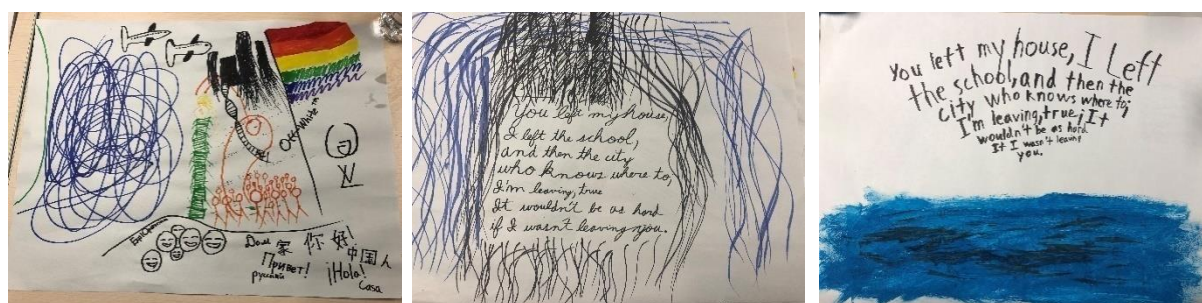 Off-White
Дом 家 你 好!
Привет! 中国人
русский ¡Hola!
Casa
You left my house,
I left the school,
and then the city
who knows where to;
I'm leaving, true
It wouldn't be as hard
if I wasn't leaving you.
You left my house, I Left
the school, and then the
city who knows where to;
I'm leaving, true; It
wouldn't be as hard
If I wasn't leaving
you.